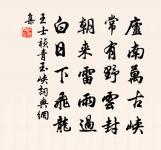 廬南萬古峽
常有野雲封
朝来雷雨過
白日下飛龍
王士禎青玉峽詞典網
集